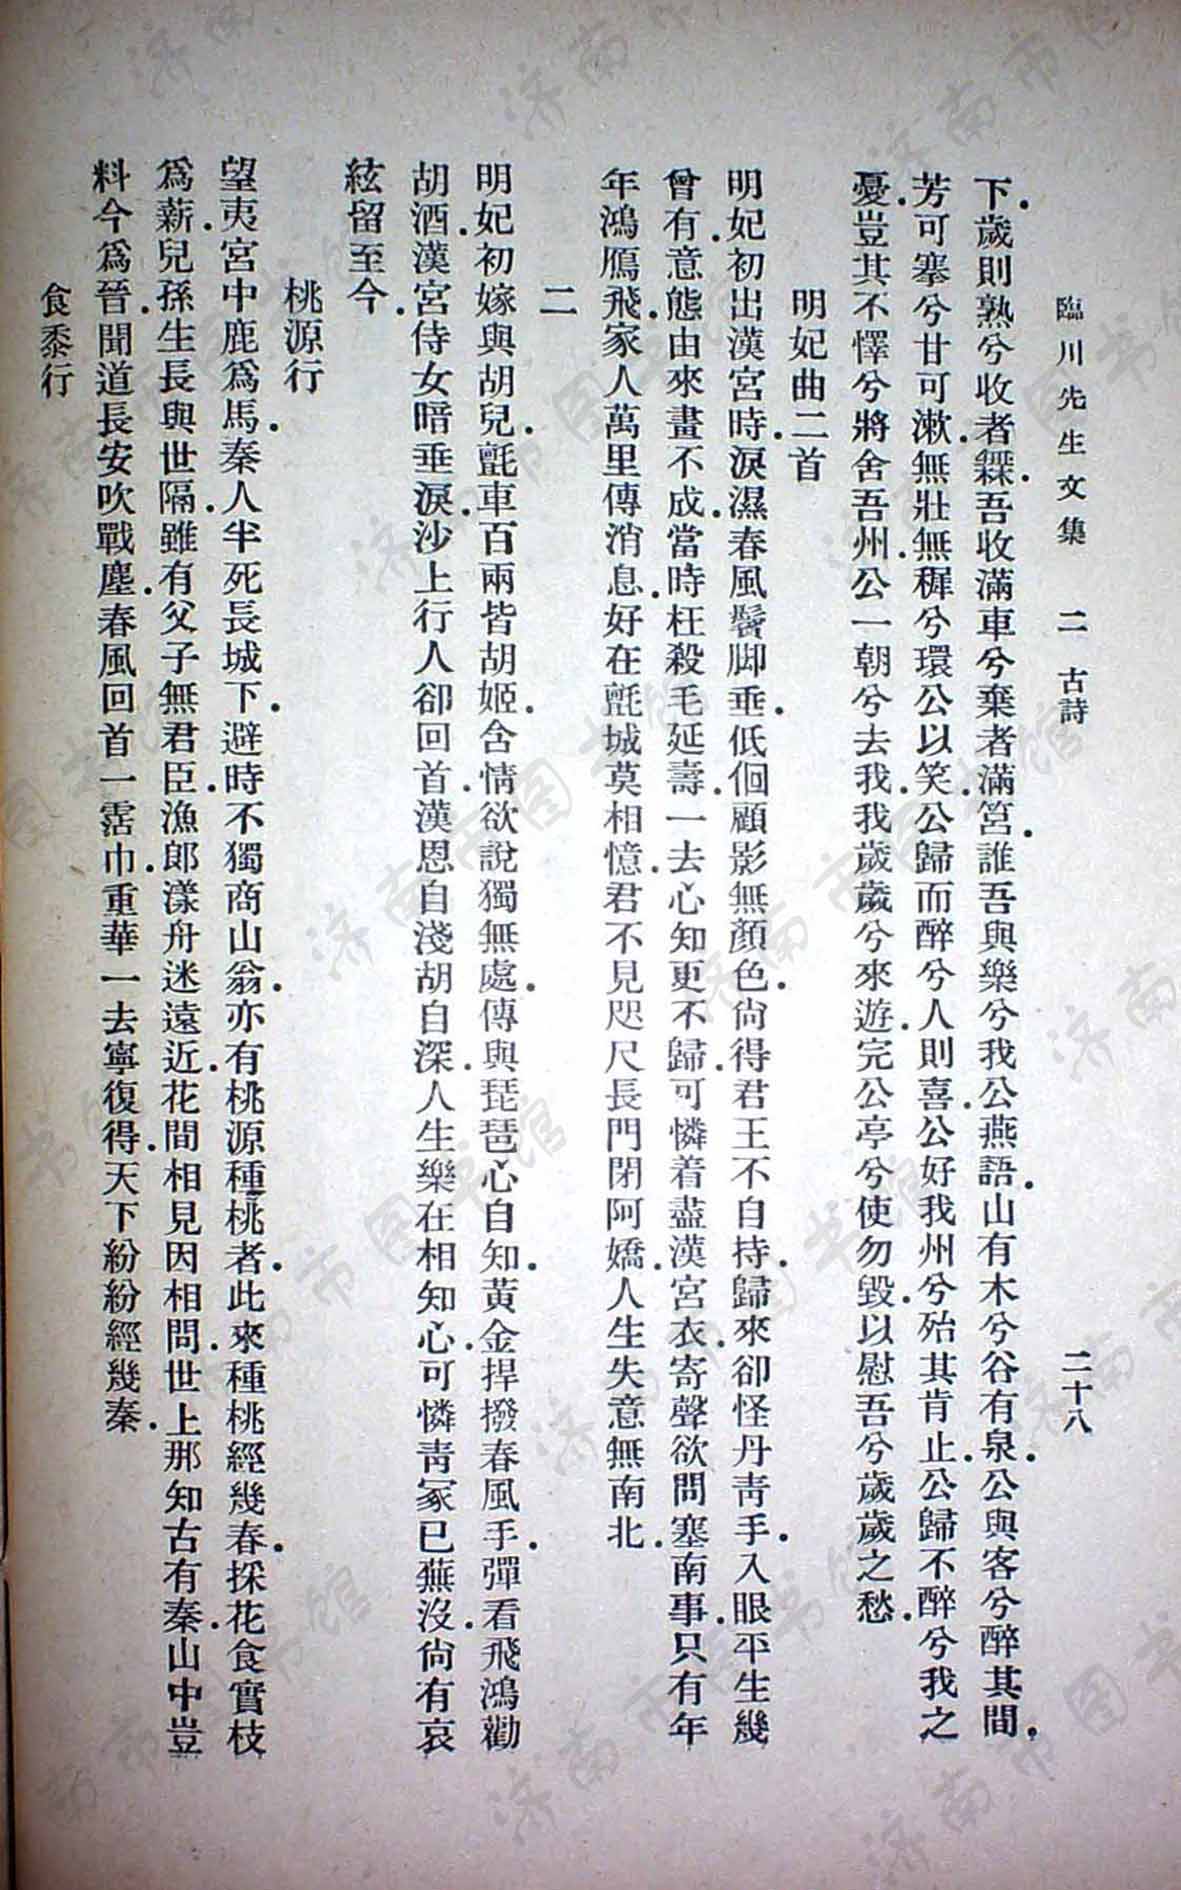 臨川先生文集　二　古詩　二十八
下．歲則熟兮收者．吾收滿車兮棄者滿筥．誰吾與樂兮我公燕語．山有木兮谷有泉．公與客兮醉其間．
芳可搴兮甘可漱．無壯無穉兮環公以笑．公歸而醉兮人則喜．公好我州兮殆其肯止．公歸不醉兮我之
憂．豈其不懌兮將舍吾州．公一朝兮去我．我歲歲兮來遊．完公亭兮使勿毀．以慰吾兮歲歲之愁．
明妃曲二首
明妃初出漢宮時．淚濕春風鬢脚垂．低佪顧影無顏色．尙得君王不自持．歸來卻怪丹靑手．入眼平生幾
曾有．意態由來畫不成．當時枉殺毛延壽．一去心知更不歸．可憐着盡漢宮衣．寄聲欲問塞南事．只有年
年鴻鴈飛．家人萬里傳消息．好在氈城莫相憶．君不見咫尺長門閉阿嬌．人生失意無南北．
二
明妃初嫁與胡兒．氈車百兩皆胡姬．含情欲說獨無處．傳與琵琶心自知．黃金捍撥春風手．彈看飛鴻勸
胡酒．漢宮侍女暗垂淚．沙上行人卻回首．漢恩自淺胡自深．人生樂在相知心．可憐靑冢已蕪沒．尙有哀
絃留至今．
桃源行
望夷宮中鹿爲馬．秦人半死長城下．避時不獨商山翁．亦有桃源種桃者．此來種桃經幾春．採花食實枝
爲薪．兒孫生長與世隔．雖有父子無君臣．漁郎漾舟迷遠近．花間相見因相問．世上那知古有秦．山中豈
料今爲晉．聞道長安吹戰塵．春風回首一霑巾．重華一去寧復得．天下紛紛經幾秦．
食黍行
济南市图书馆